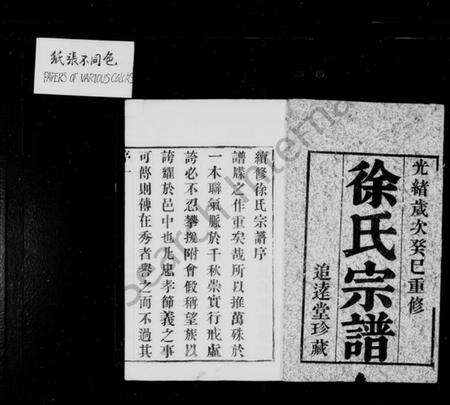 紙張不同色
PAPERS OF VARIOUS COLORS
光緒歲次癸巳重修
徐氏宗譜
追逹堂珍藏
續修徐氏宗譜序
譜牒之作重矣哉所以推萬殊於
一本聯氣脈於千秋崇實行戒虛
誇必不忍攀援附會假稱望族以
誇耀於邑中也凡忠孝節義之事
可傳則傳在秀者譽之而不過其
序一